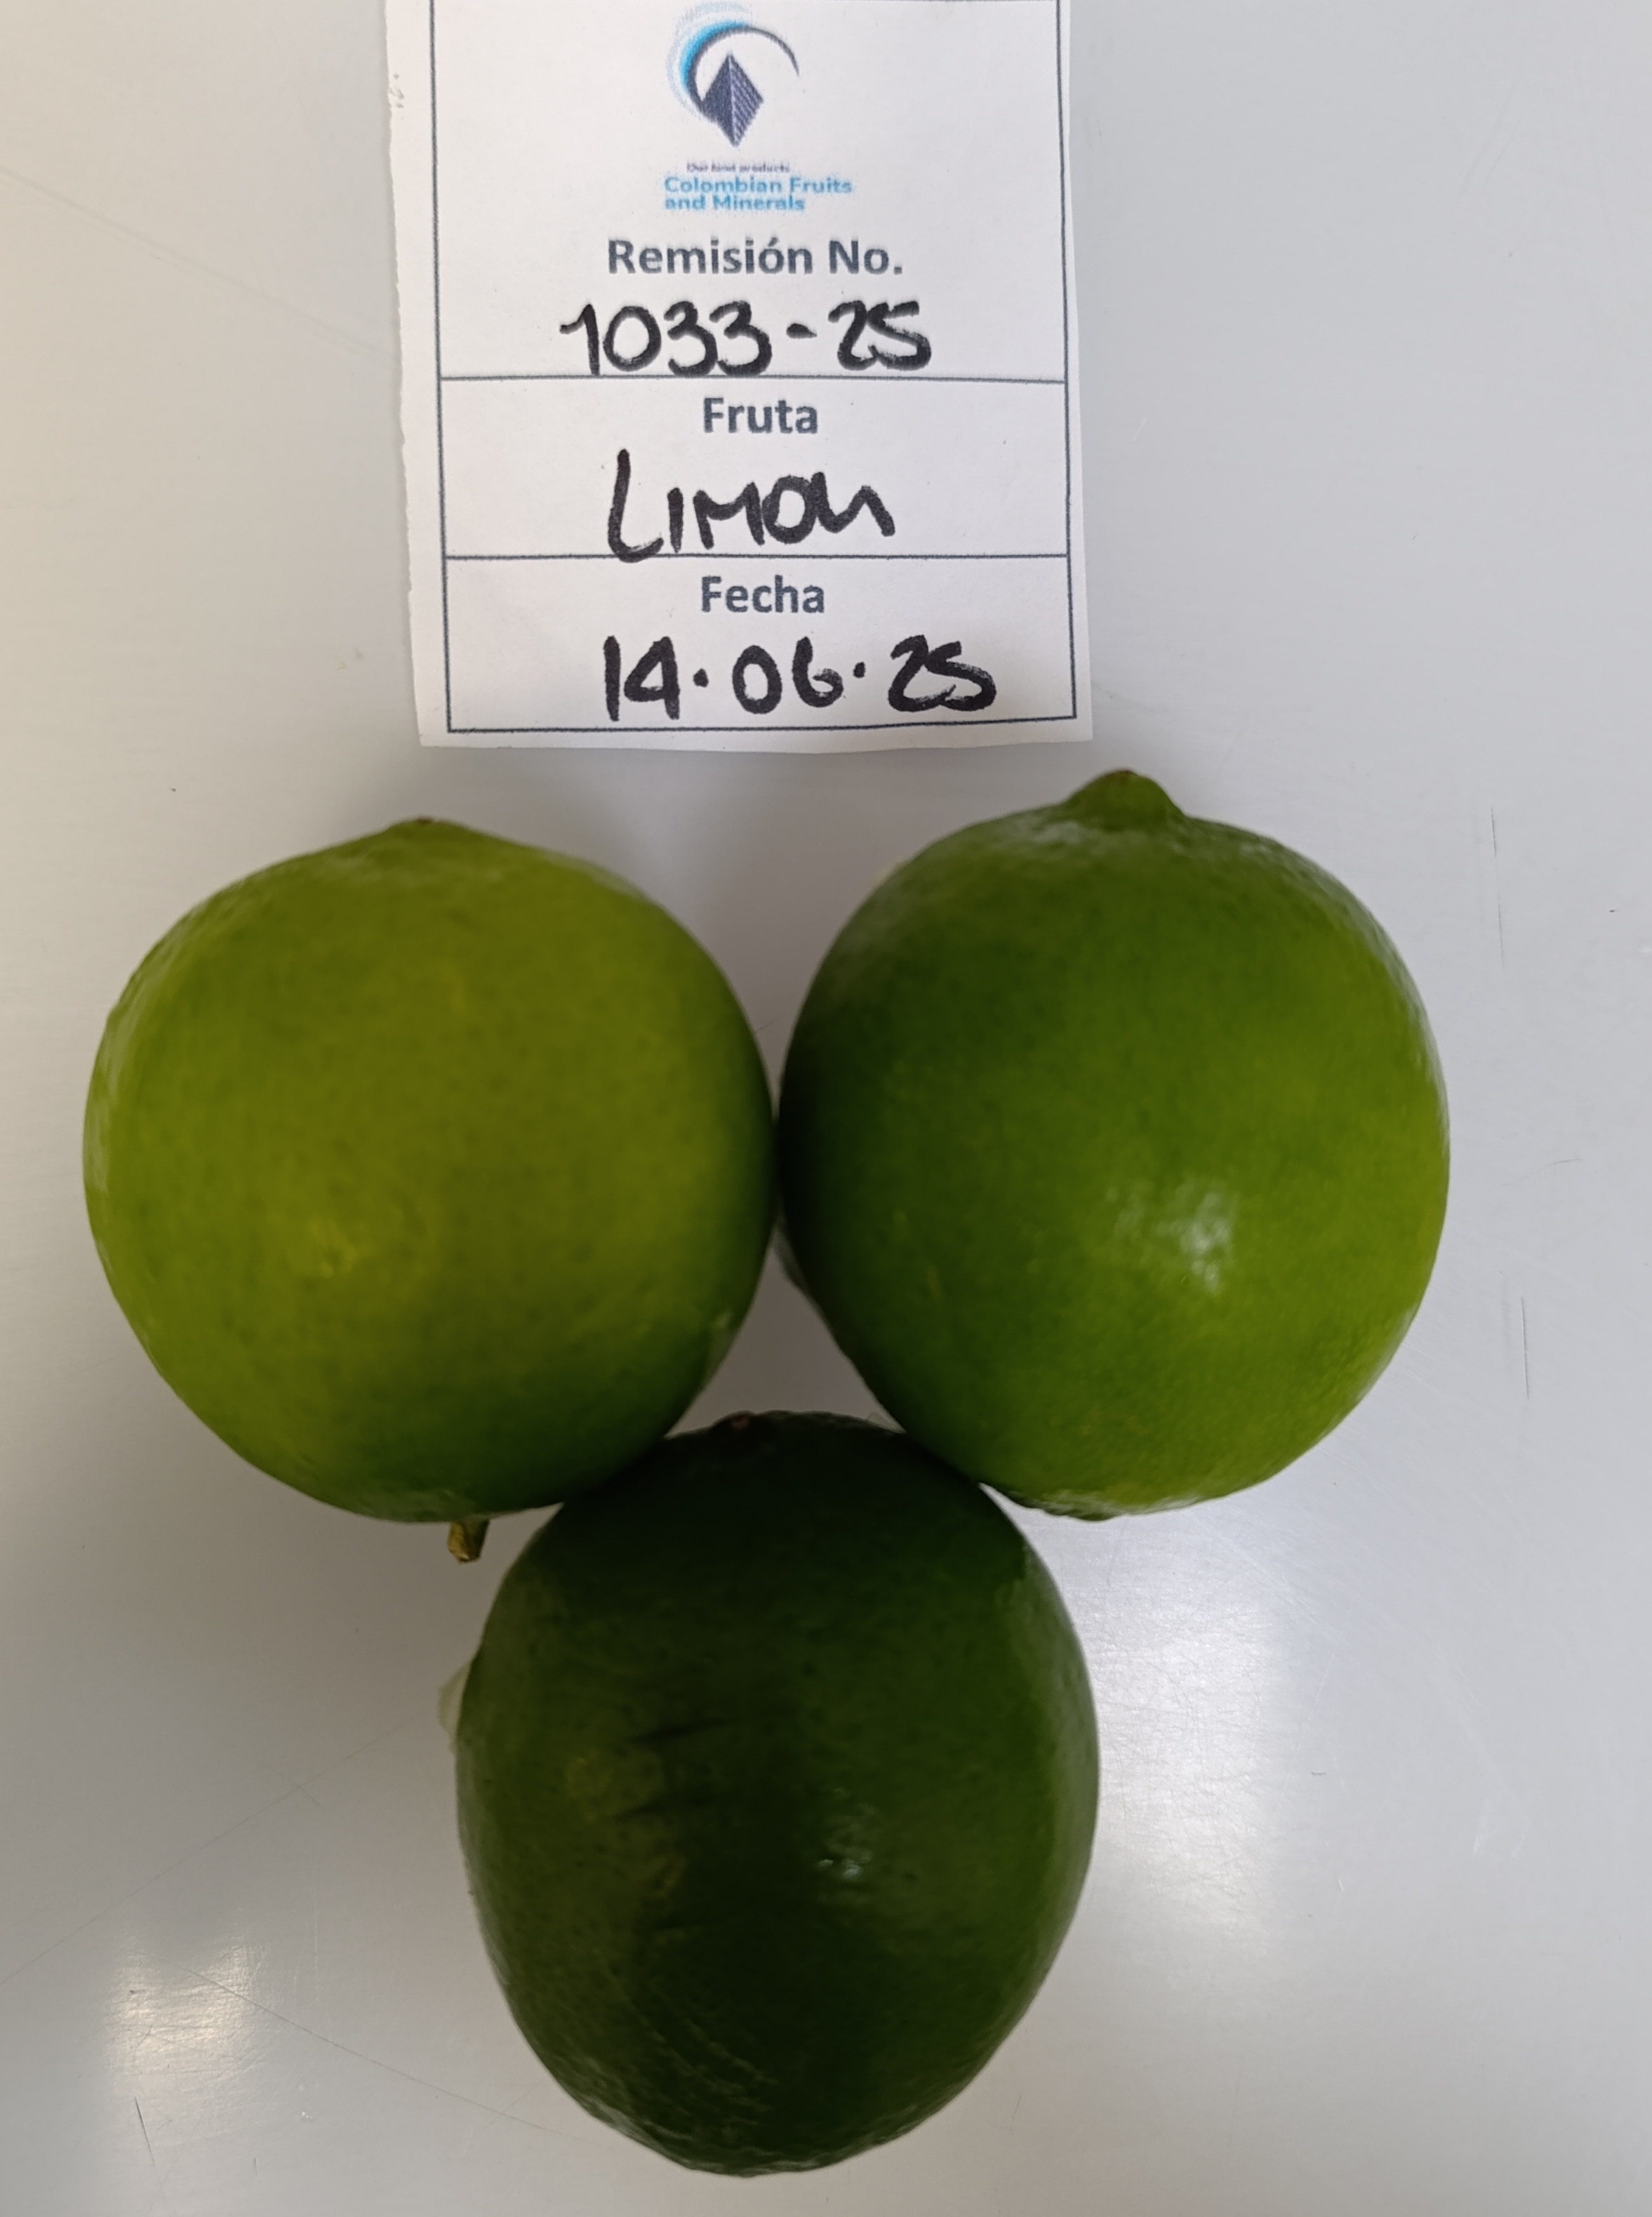 Our best products
Colombian Fruits
and Minerals
Remisión No.
1033-25
Fruta
LIMON
Fecha
14.06.25